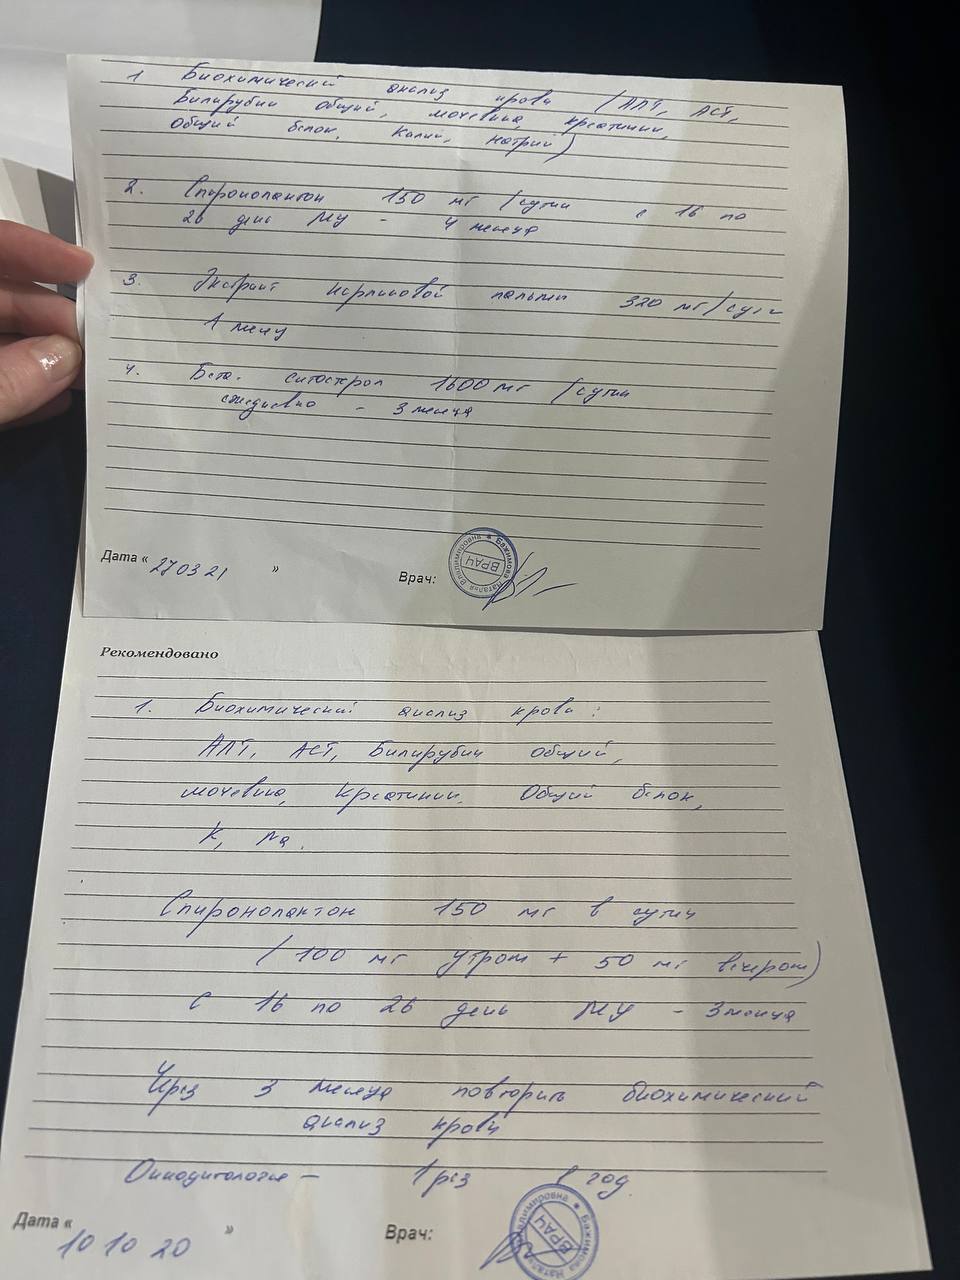 1 Биохимический анализ крови (АЛТ, АСТ,
Билирубин общий, мочевина, креатинин,
общий белок, калий, натрий)
2. Спиронолактон 150 мг/сутки с 16 по
26 день МЦ - 4 месяца
3. Экстракт карликовой пальмы 320 мг/сутки
1 месяц
4. Бета. ситостерол 1600 мг/сутки
ежедневно - 3 месяца
Дата « 27 03 21 »
Врач:
Бажимова Наталья Владимировна
ВРАЧ
Рекомендовано
1. Биохимический анализ крови:
АЛТ, АСТ, Билирубин общий,
мочевина, Креатинин. Общий белок,
K, Na.
Спиронолактон 150 мг в сутки
(100 мг утром + 50 мг вечером)
с 16 по 26 день МЦ - 3 месяца
Через 3 месяца повторить биохимический
анализ крови
Онкоцитология - 1 раз в год.
Дата « 10 10 20 »
Врач:
Бажимова Наталья Владимировна
ВРАЧ